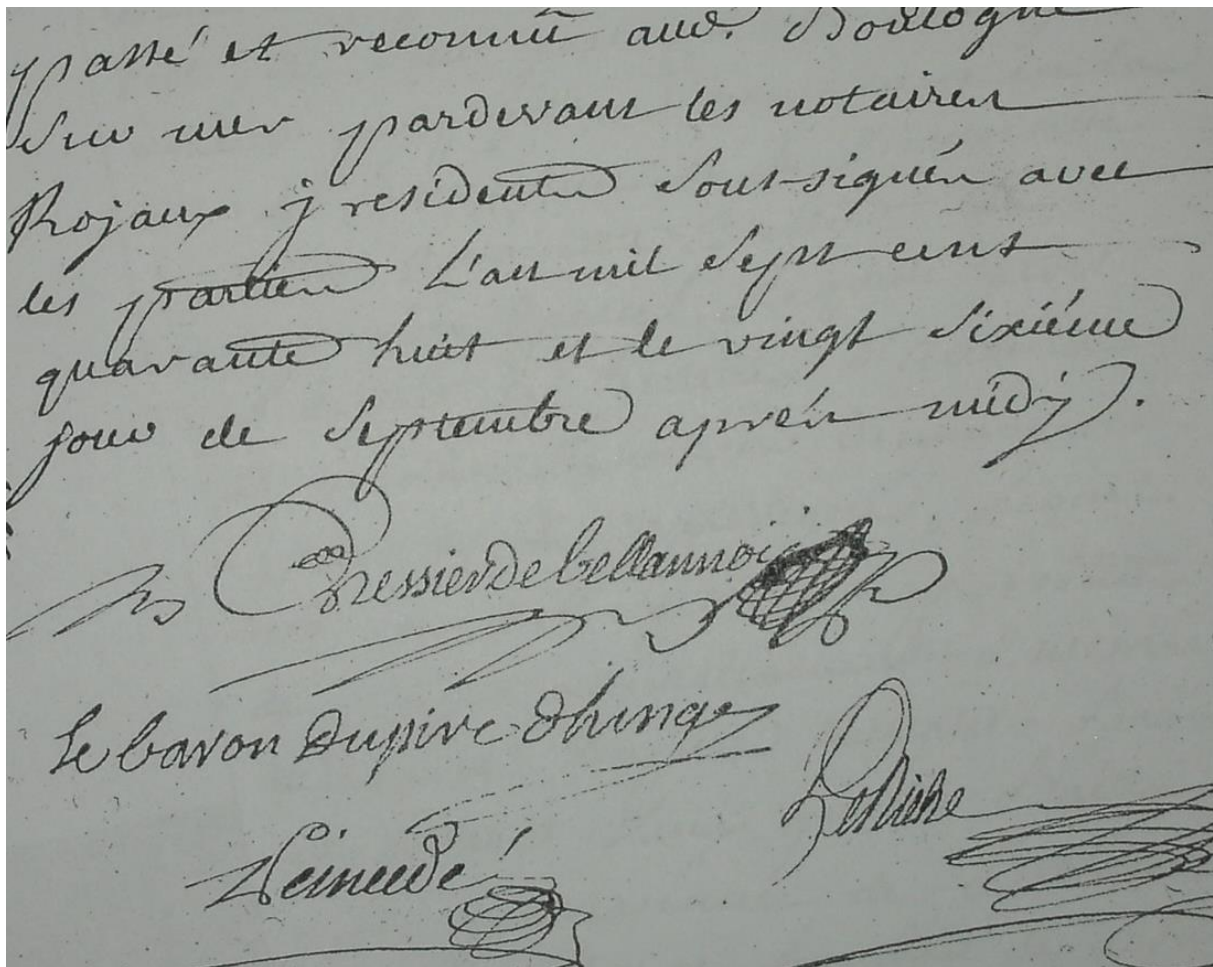 passé et reconnû aud. Boulogne
sur mer pardevant les notaires
Rojaux j residents sous-signés avec
les parties L'an mil sept cent
quarante huit et le vingt sixiéme
jour de septembre aprés midÿ.
Dressier de bellannoi
Le baron dupire dhinge